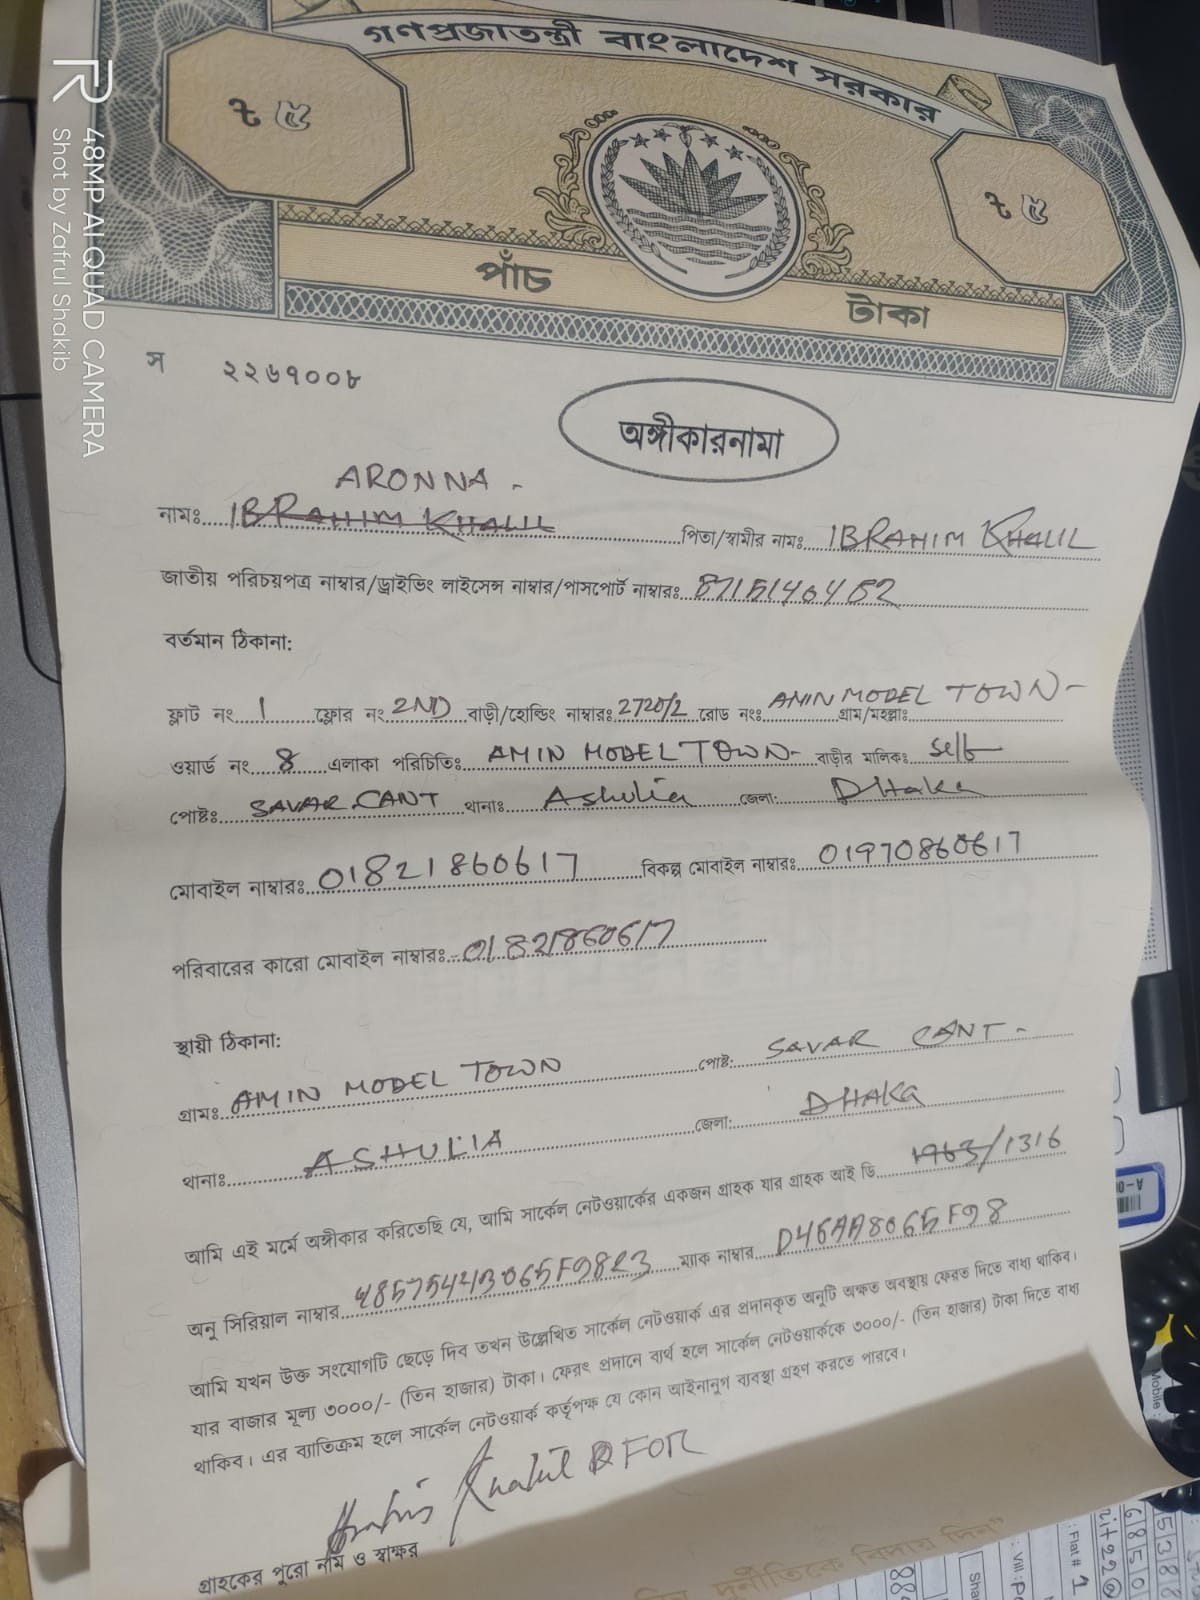 গণপ্রজাতন্ত্রী বাংলাদেশ সরকার
৳ ৫
৳ ৫
পাঁচ
টাকা
48MP AI QUAD CAMERA
Shot by Zafrul Shakib
স ২২৬৭০০৮
অঙ্গীকারনামা
ARONNA -
নামঃ IBRAHIM KHALIL পিতা/স্বামীর নামঃ IBRAHIM KHALIL
জাতীয় পরিচয়পত্র নাম্বার/ড্রাইভিং লাইসেন্স নাম্বার/পাসপোর্ট নাম্বারঃ
বর্তমান ঠিকানা:
ফ্লাট নং 1 ফ্লোর নং 2ND বাড়ী/হোল্ডিং নাম্বারঃ 2720/2 রোড নংঃ AMIN MODEL TOWN- গ্রাম/মহল্লাঃ
ওয়ার্ড নং 8 এলাকা পরিচিতিঃ AMIN MODEL TOWN- বাড়ীর মালিকঃ self
পোষ্টঃ SAVAR CANT থানাঃ Ashulia জেলা: Dhaka
মোবাইল নাম্বারঃ 01821860617 বিকল্প মোবাইল নাম্বারঃ 01970860617
পরিবারের কারো মোবাইল নাম্বারঃ 01821860617
স্থায়ী ঠিকানা:
গ্রামঃ AMIN MODEL TOWN পোষ্ট: SAVAR CANT-
থানাঃ ASHULIA জেলা: DHAKA
আমি এই মর্মে অঙ্গীকার করিতেছি যে, আমি সার্কেল নেটওয়ার্কের একজন গ্রাহক যার গ্রাহক আই ডি 1963/1316
অনু সিরিয়াল নাম্বার ম্যাক নাম্বার D46AA8065F98
আমি যখন উক্ত সংযোগটি ছেড়ে দিব তখন উল্লেখিত সার্কেল নেটওয়ার্ক এর প্রদানকৃত অনুটি অক্ষত অবস্থায় ফেরত দিতে বাধ্য থাকিব।
যার বাজার মূল্য ৩০০০/- (তিন হাজার) টাকা। ফেরৎ প্রদানে ব্যর্থ হলে সার্কেল নেটওয়ার্ককে ৩০০০/- (তিন হাজার) টাকা দিতে বাধ্য
থাকিব। এর ব্যাতিক্রম হলে সার্কেল নেটওয়ার্ক কর্তৃপক্ষ যে কোন আইনানুগ ব্যবস্থা গ্রহণ করতে পারবে।
Khalil FOR
গ্রাহকের পুরো নাম ও স্বাক্ষর
দুর্নীতিকে বিদায় দিন"
Mobile :
: Flat # 1
: Vill: P
Sha